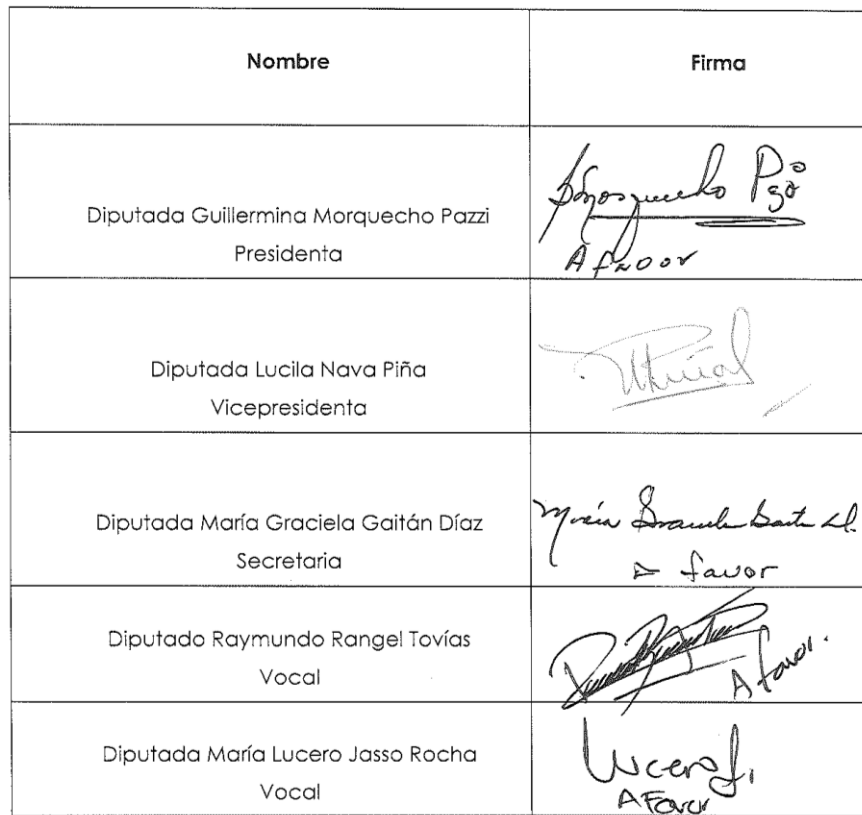 Nombre
Firma
Diputada Guillermina Morquecho Pazzi
Presidenta
Morquecho
A favor
Diputada Lucila Nava Piña
Vicepresidenta
Diputada María Graciela Gaitán Díaz
Secretaria
María Graciela
A favor
Diputado Raymundo Rangel Tovías
Vocal
A favor.
Diputada María Lucero Jasso Rocha
Vocal
Lucero J.
A Favor